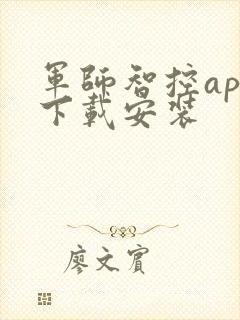 軍師智控ap
下載安裝
廖文賓